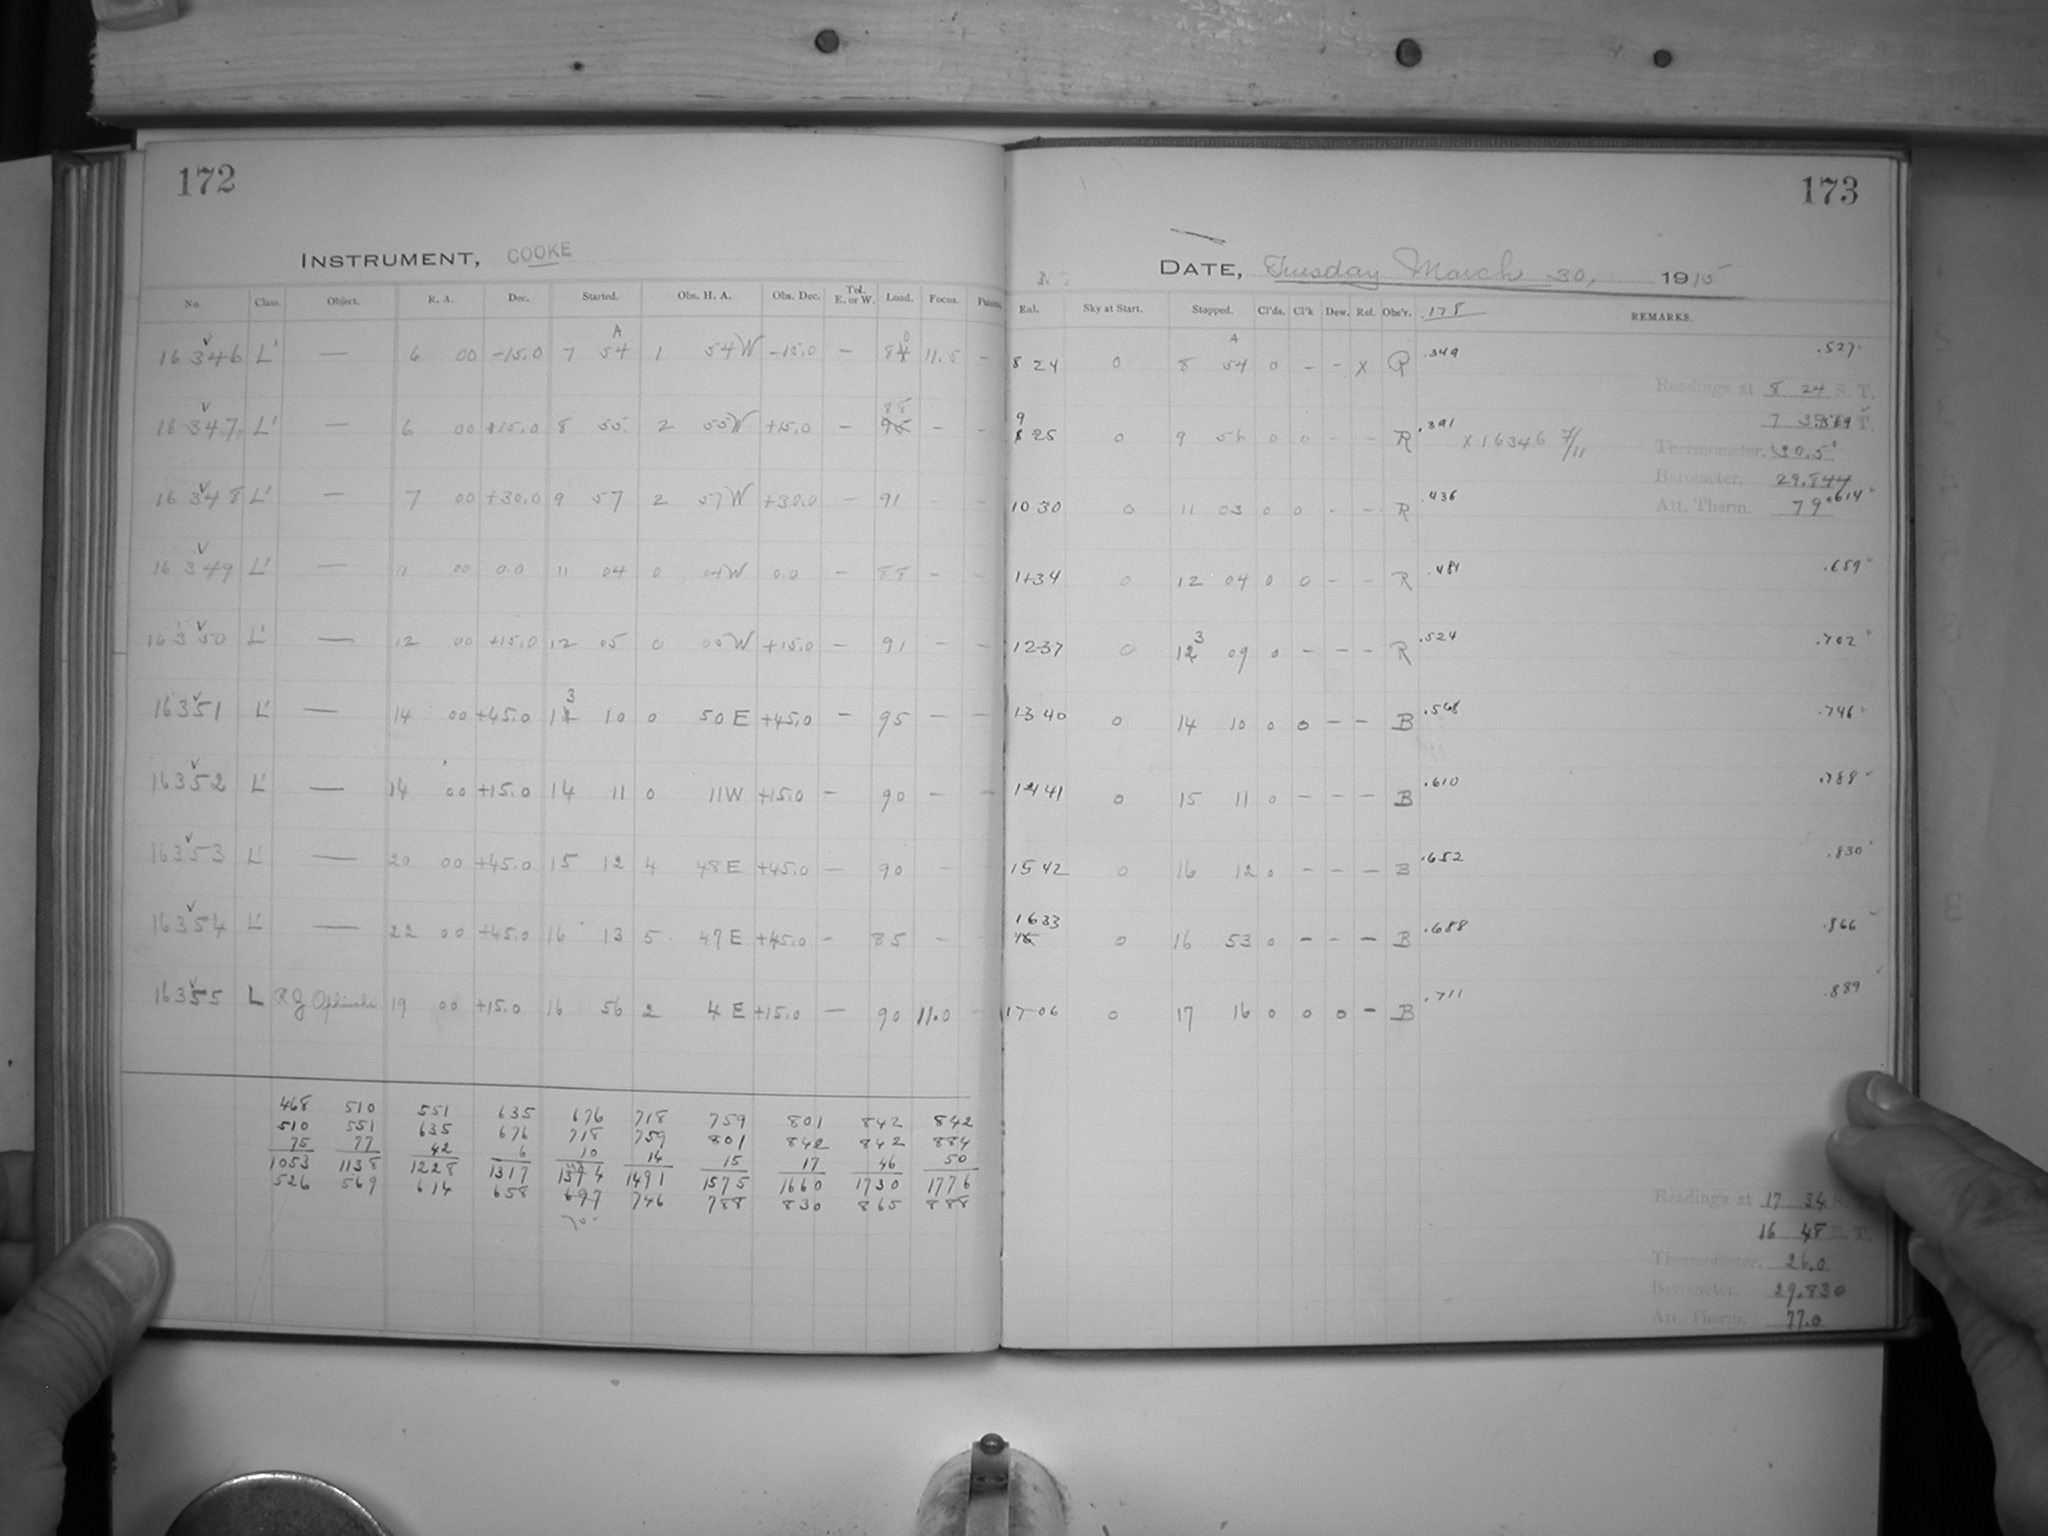 172
INSTRUMENT, COOKE
No. Class. Object. R. A. Dec. Started. Obs. H. A. Obs. Dec. Tel. E. or W. Load. Focus.
16346 L' — 6 00 -15.0 7 54 A 1 54W -15.0 — 11.5 -
16347 L' — 6 00 +15.0 8 55 2 55W +15.0 — 88 - -
16348 L' — 7 00 +30.0 9 57 2 57W +30.0 — 91
16349 L' — 11 00 0.0 11 04 0 04W 0.0 — 88 - -
16350 L' — 12 00 +15.0 12 05 0 05W +15.0 — 91 - -
16351 L' — 14 00 +45.0 13 10 0 50 E +45.0 — 95 - -
16352 L' — 14 00 +15.0 14 11 0 11W +15.0 — 90 - -
16353 L' — 20 00 +45.0 15 12 4 48E +45.0 — 90 -
16354 L' — 22 00 +45.0 16 13 5 47E +45.0 - 85 - -
16355 L 19 00 +15.0 16 56 2 4 E +15.0 — 90 11.0 -
468 510 551 635 676 718 759 801 842 842
510 551 635 676 718 759 801 842 842 884
75 77 42 6 10 14 15 17 46 50
1053 1138 1228 1317 1491 1575 1660 1730 1776
526 569 614 658 697 746 788 830 865 888
173
DATE, Tuesday March 30, 1915
Enl. Sky at Start. Stopped. Cl'ds. Cl'k Dew. Ref. Obs'r. .178 REMARKS.
8 24 0 8 54 A 0 - - x R .349 .527
Readings at 8 24 S. T.
9 25 0 9 56 0 0 - - R .391 x 16346 7/11
Thermometer. 30.5
Barometer. 29.844
10 30 0 11 03 0 0 - - R .436 .614
Att. Therm. 79
11 34 0 12 04 0 0 - - R .481 .659
12 37 0 13 09 0 - - - R .524 .702
13 40 0 14 10 0 0 - - B .568 .746
14 41 0 15 11 0 - - - B .610 .788
15 42 0 16 12 0 - - - B .652 .830
16 33 0 16 53 0 - - - B .688 .866
17 06 0 17 16 0 0 0 - B .711 .889
Readings at 17 34 S. T.
16 48 E. T.
Thermometer. 26.0
Barometer. 29.830
Att. Therm. 77.0